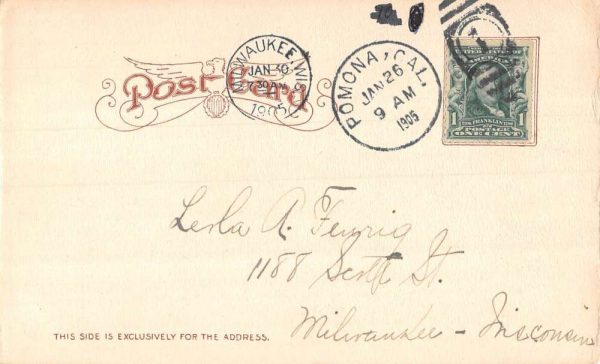 Post Card
MILWAUKEE, WIS.
JAN 30
1905
POMONA, CAL.
JAN 26
9 AM
1905
UNITED STATES OF
AMERICA
1 FRANKLIN 1
POSTAGE
ONE CENT
A. Fennig
1188 Scott St.
Milwaukee – Wisconsin
THIS SIDE IS EXCLUSIVELY FOR THE ADDRESS.